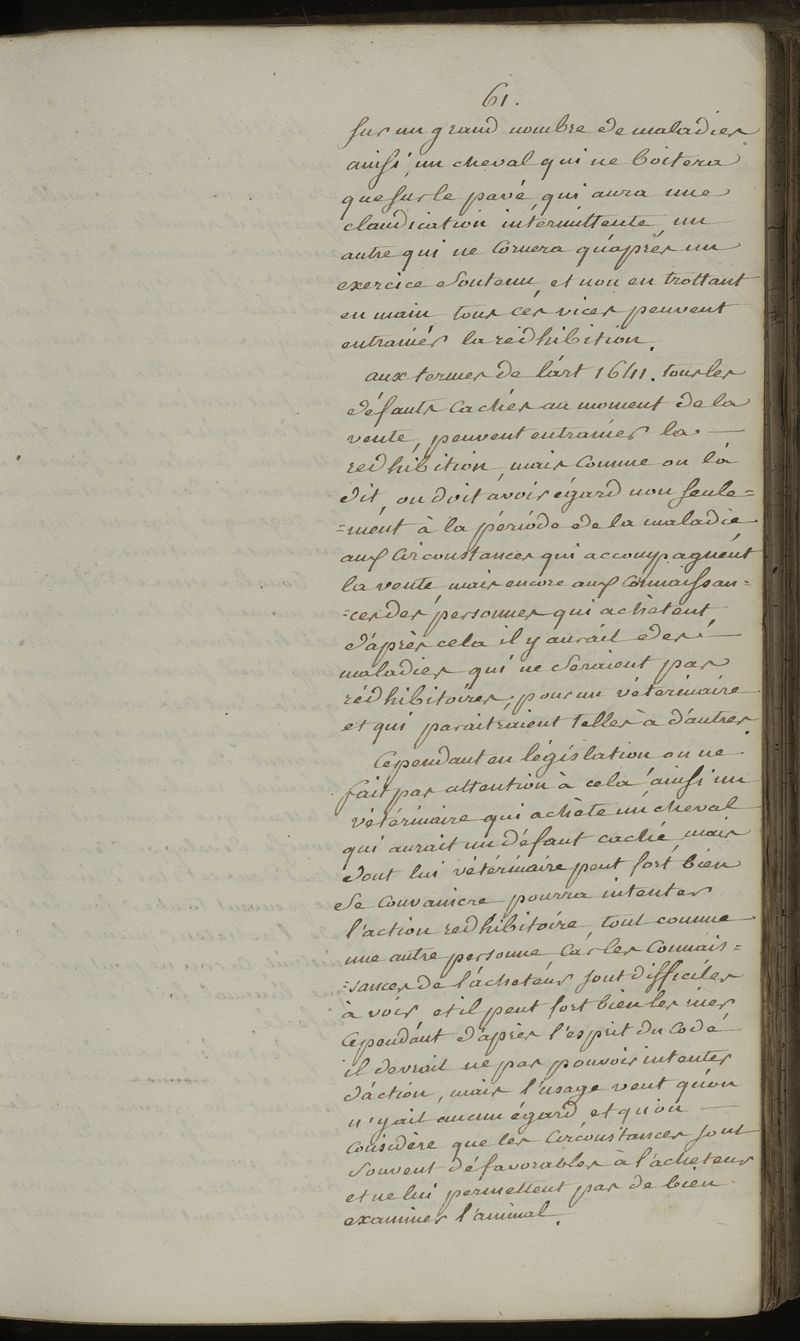 61.
sur un grand nombre de maladies
ainsi, un cheval qui ne boitera
que sur le pavé, qui aura une
claudication intérmittente, un
autre qui ne Cornera qu'après un
exercice Soutenu, et non en trottant
en main tous ces vices peuvent
entrainér la rédhibition.
aux termes de l'art 1641. tous les
défauts Cachés au moment de la
vente, peuvent entrainer la —
redhibition, mais Comme on l'a
dit, on doit avoir égard non seule=
=ment à la période de la maladie
aux Circonstances qui accompagnent
la vente mais encore aux Connaissan=
=ces des personnes qui achètent
d'après cela il y aurait des —
maladies qui ne Seraient pas
rédhibitoires, pour un vétérinaire
et qui paraitraient telles à d'autres.
Cependant en législation on ne
fait pas attention à cela, ainsi un
vétérinaire qui achète un cheval
qui aurait un défaut caché, mais
dont lui vétérinaire peut fort bien
Se Convaincre pourra intenter
l'action redhibitoire, tout comme
une autre personne, Car les Connais=
=sances de l'acheteur sont difficiles
à voir, et il peut fort bien les nier
Cependant d'après l'esprit du Code
il devrait ne pas pouvoir intenter
d'action, mais l'usage veut qu'on
n'y ait aucun égard, et qu'on —
Considère que les Circonstances sont
Souvent défavorables à l'acheteur
et ne lui permettent pas de bien
examiner l'animal.